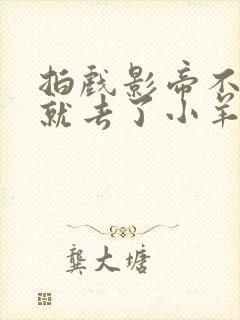 拍戏影帝不
就去了小羊
龚大塘